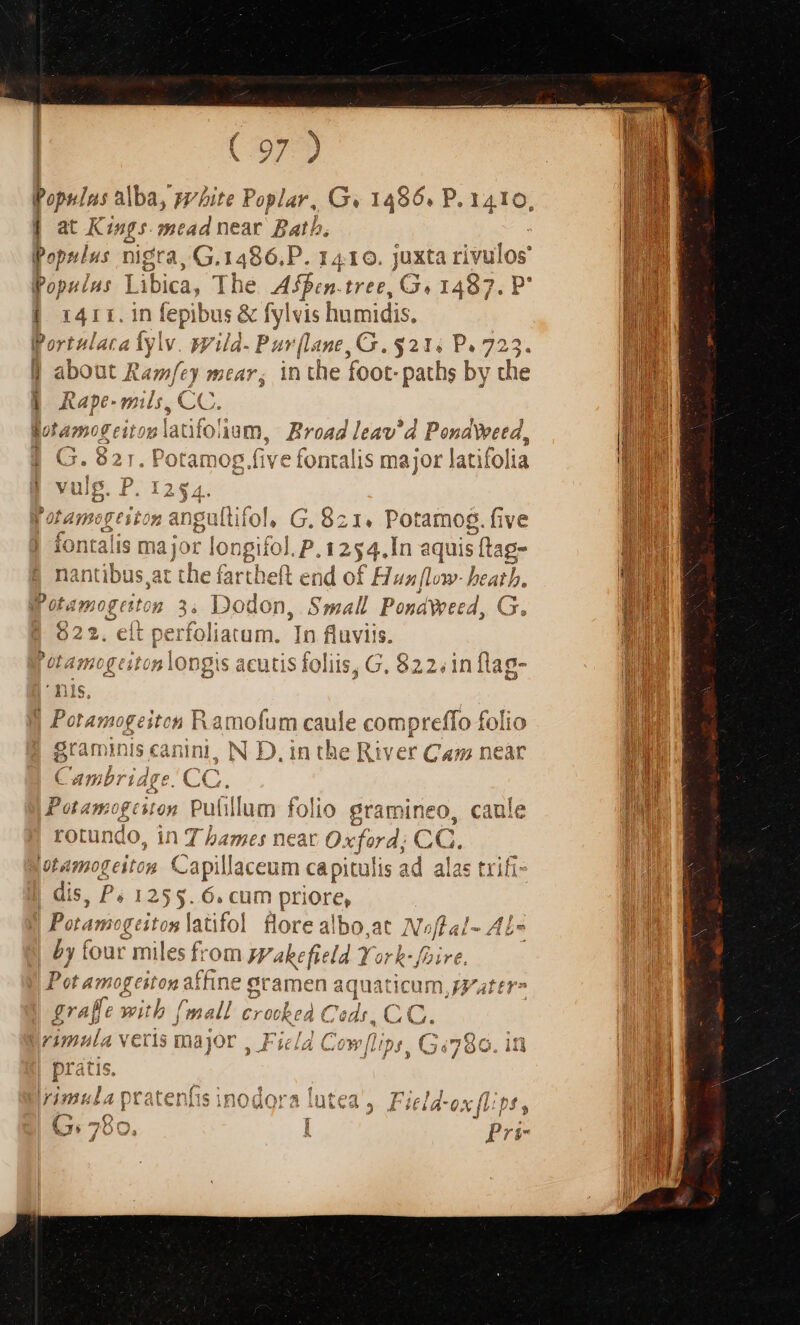 ( 97 )
Populus alba, White Poplar, G. 1486. P. 1410,
at Kings-mead near Bath.
Populus nigra, G.1486.P. 1410. juxta rivulos
Populus Libica, The Aſpen-tree, G. 1487. P
1411. in ſepibus & ſylvis humidis.
Portulaca ſylv. Wild-Purſlane, G. 521. P. 723.
about Ramſey mear, in the foot-paths by the
Rape-mils, CC.
Potamogeiton latifolium, Broad leav'd PondWeed,
G. 821. Potamog. ſive fontalis major latifolia
vulg. P. 1254.
Potamogeiton anguſtifol. G. 821. Potamog. ſive
fontalis major longifol. P. 1254. In aquis ſtag-
nantibus, at the fartheſt end of Hunſlow-heath.
Potamogeiton 3. Dodon, Small PondWeed, G.
822. eſt perfoliatum. In fluviis.
Potamogeiton longis acutis foliis, G. 822. in ſtag-
nis.
Potamogeiton Ramoſum caule compreſſo folio
graminis canini, N D. in the River Cam near
Cambridge. CC.
Potamogeiton Puſillum folio gramineo, caule
rotundo, in Thames near Oxford; CC.
Potamogeiton Capillaceum capitulis ad alas trifi-
dis, P. 1255. 6. cum priore,
Potamogeiton latifol flore albo, at Noſtal-Ab-
by four miles from Wakefield York-ſhire.
Potamogeiton affine gramen aquaticum, Water-
graſſe with ſmall crooked Cods, CC.
Primula veris major, Field Cowſlips, G. 780. in
pratis.
Primula pratenſis inodora lutea, Field-oxſlips,
G. 780. I Pri-